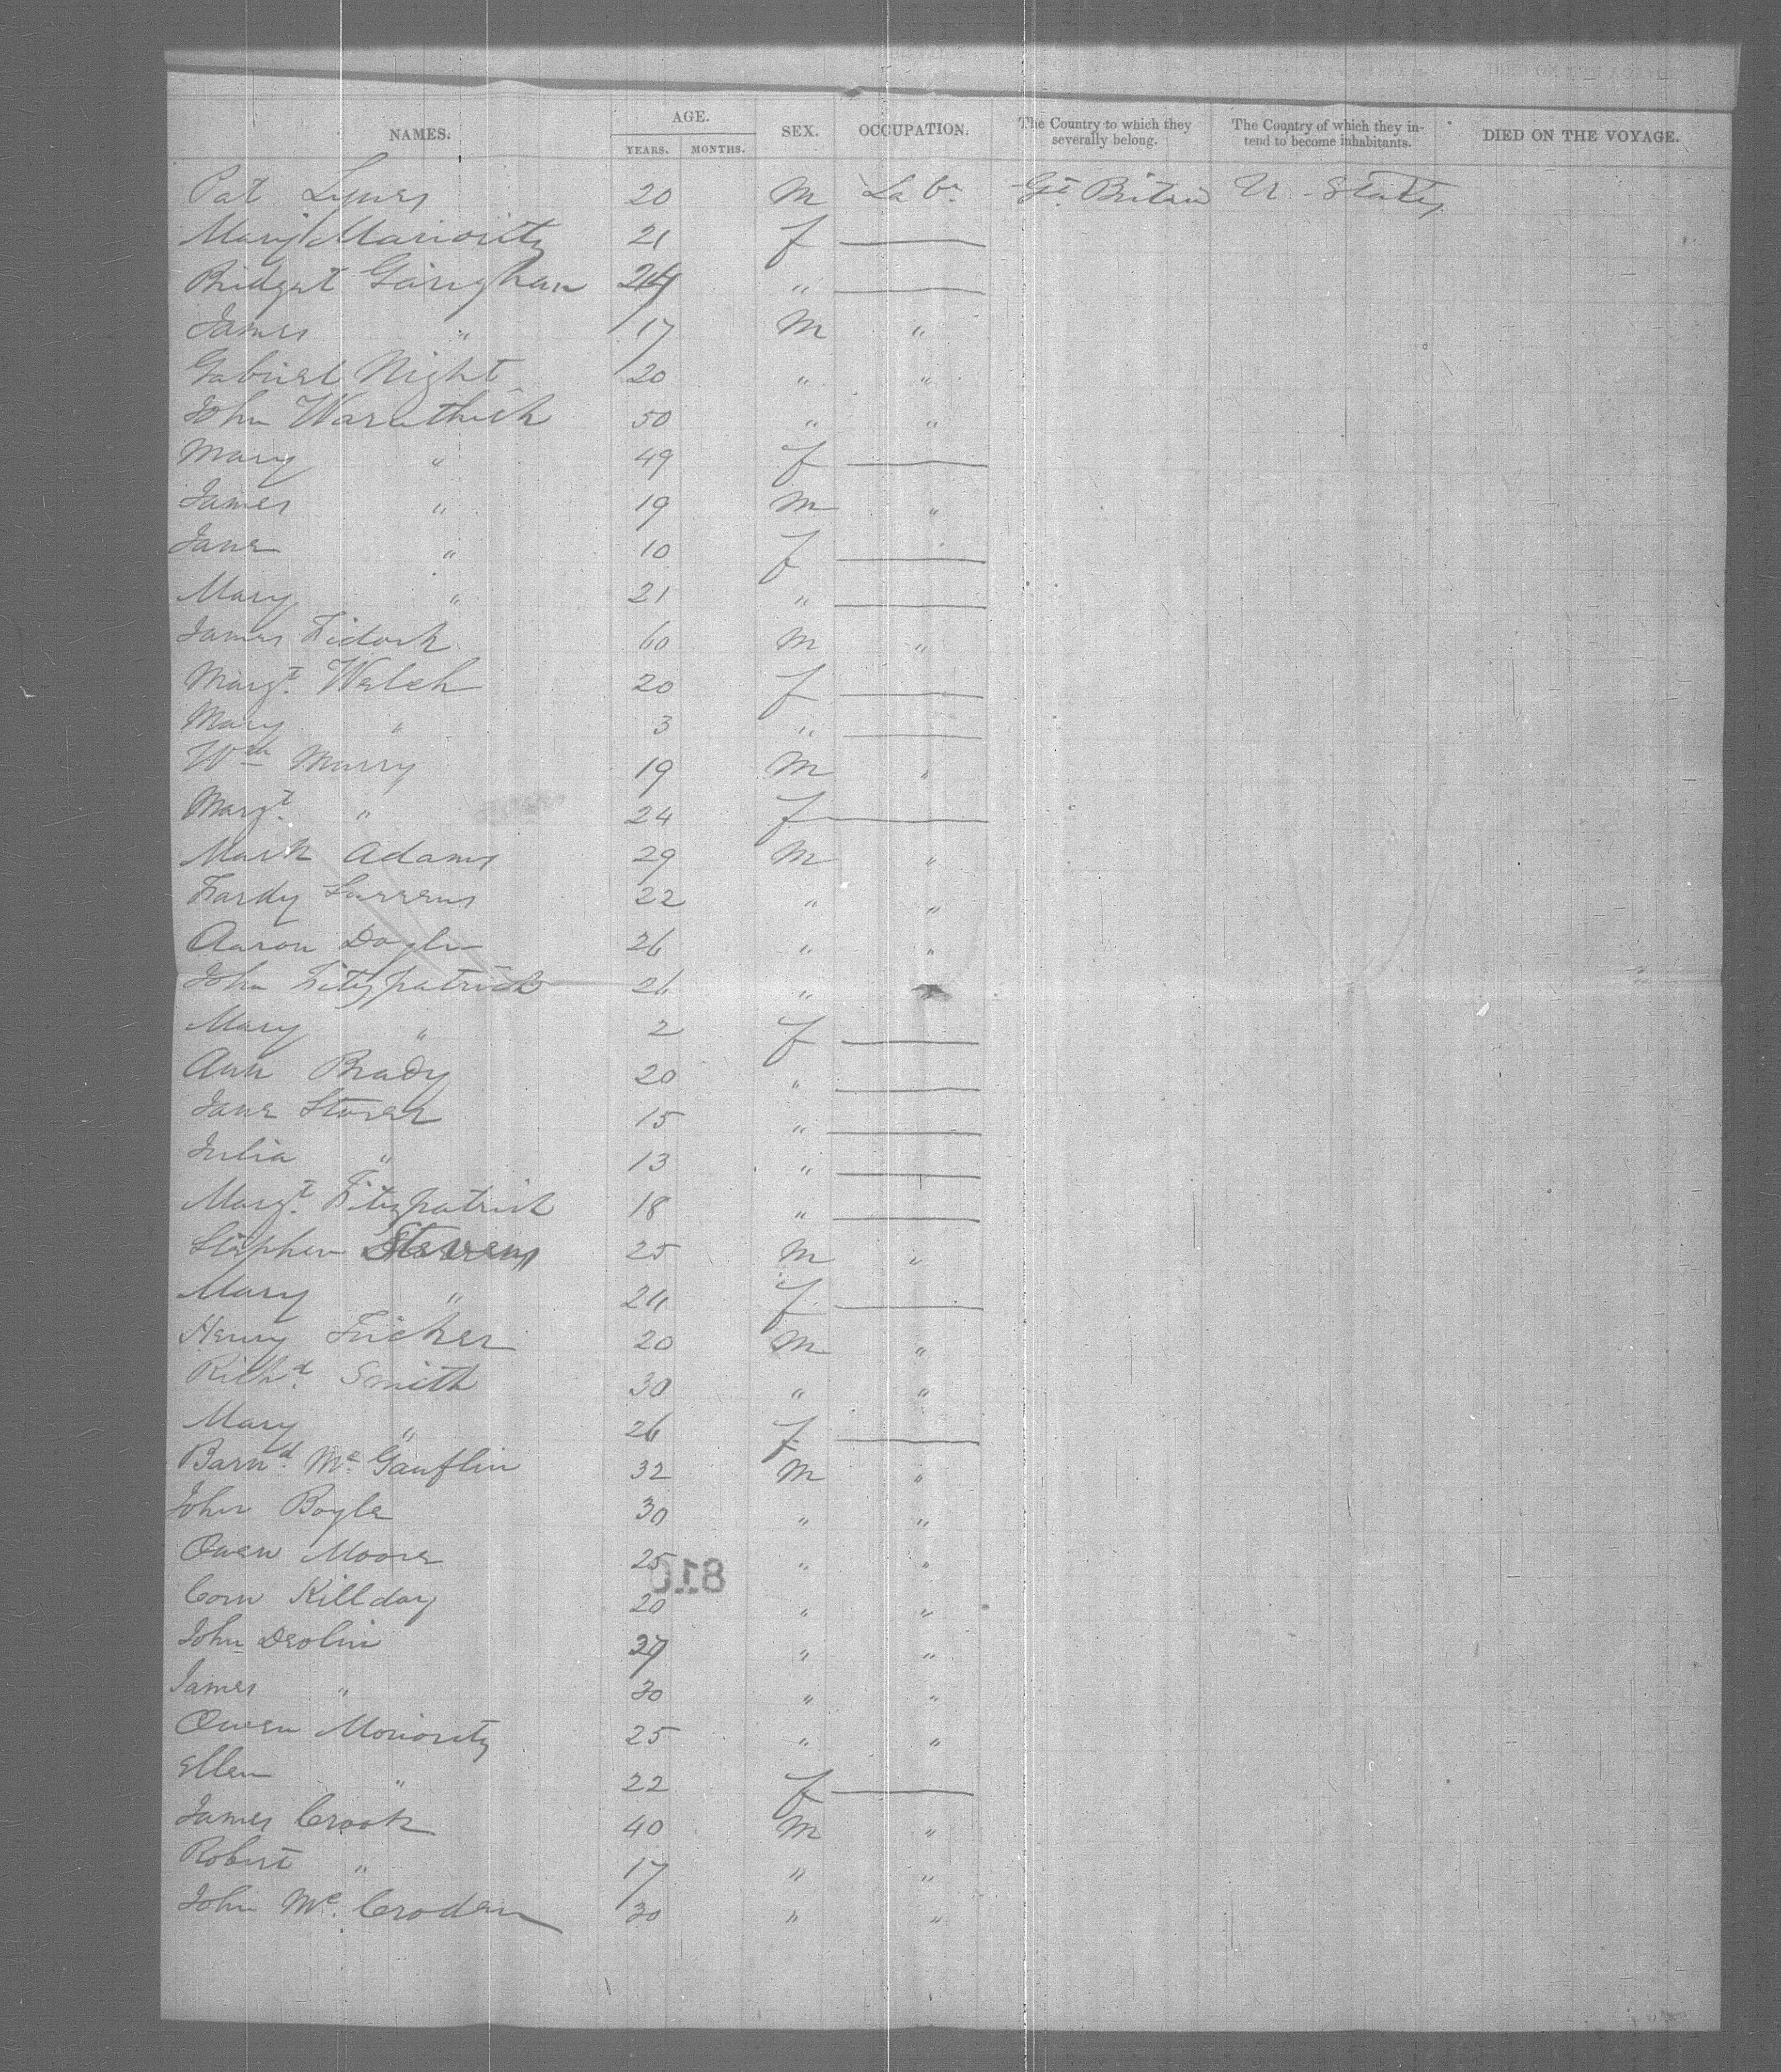 NAMES. AGE. YEARS. MONTHS. SEX. OCCUPATION. The Country to which they severally belong. The Country of which they intend to become inhabitants. DIED ON THE VOYAGE.
Pat Lynes 20 M Labr. Gt. Britain U States
Mary Mariority 21 f
Bridget Garighan 24 "
James " 17 M "
Gabriel Night 20 " "
John Warathick 50 " "
Mary " 49 f
James " 19 M "
Jane " 10 f
Mary " 21 "
James Fidock 60 M "
Margt. Welch 20 f
Mary " 3 "
Wm Murry 19 M "
Margt. " 24 f
Mark Adams 29 M "
Hardy 22 " "
Aaron Doyle 26 " "
John Fitzpatrick 26 " "
Mary " 2 f
Ann Brady 20 "
Jane Storer 15 "
Julia " 13 "
Margt. Fitzpatrick 18 "
Stephen Stevens 25 M "
Mary " 24 f
Henry Fricker 20 M "
Richd. Smith 30 " "
Mary " 26 f
Barnd. Mc. Gauflin 32 M "
John Boyle 30 " "
Owen Moore 25 " "
Corn Killday 20 " "
John Deolin 27 " "
James " 30 " "
Owen Moriority 25 " "
Ellen " 22 f
James Crook 40 M "
Robert " 17 " "
John Mc. Croden 30 " "
810